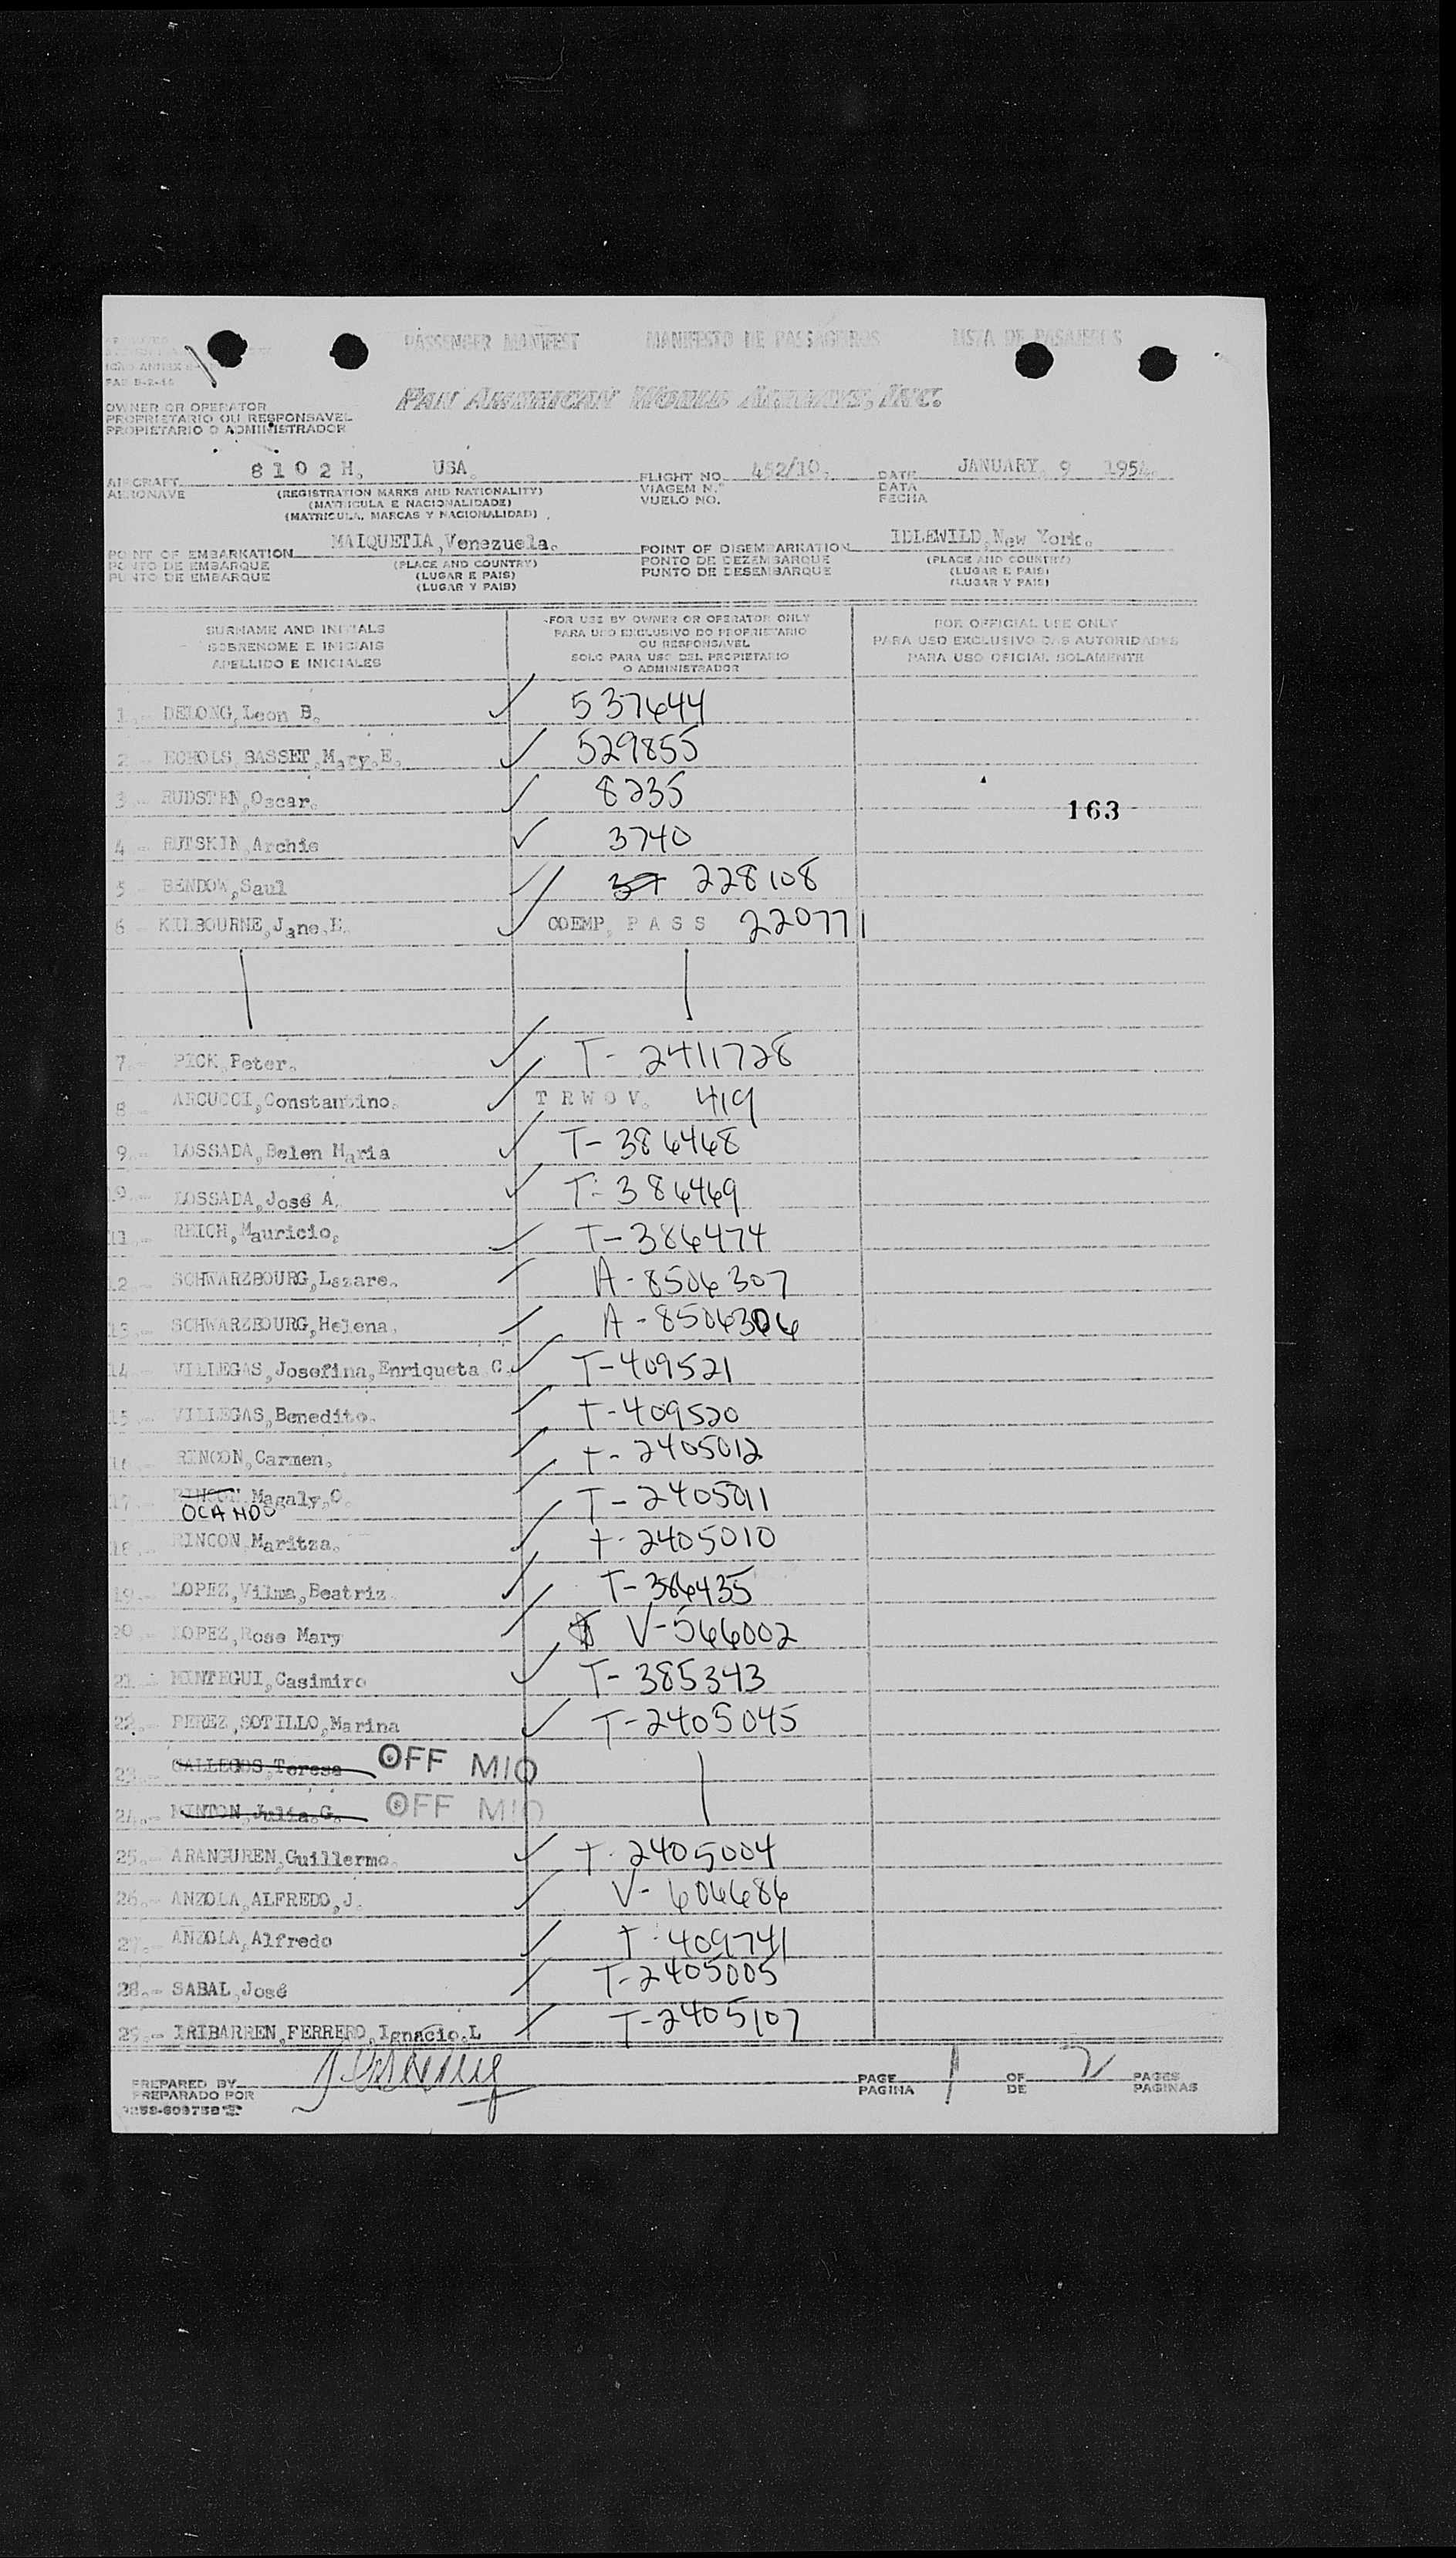 PASSENGER MANIFEST MANIFESTO DE PASSAGEIROS LISTA DE PASAJEROS
ICAO ANNEX
PAN AMERICAN WORLD AIRWAYS, INC.
OWNER OR OPERATOR
PROPRIETARIO OU RESPONSAVEL
PROPIETARIO O ADMINISTRADOR
AIRCRAFT 8102H. USA. FLIGHT NO. 452/10. DATE JANUARY. 9 1954.
AERONAVE (REGISTRATION MARKS AND NATIONALITY) VIAGEM N.° DATA
(MATRICULA E NACIONALIDADE) VUELO NO. FECHA
(MATRICULA, MARCAS Y NACIONALIDAD)
POINT OF EMBARKATION MAIQUETIA,Venezuela. POINT OF DISEMBARKATION IDLEWILD,New York.
PONTO DE EMBARQUE (PLACE AND COUNTRY) PONTO DE DEZEMBARQUE (PLACE AND COUNTRY)
PUNTO DE EMBARQUE (LUGAR E PAIS) PUNTO DE DESEMBARQUE (LUGAR E PAIS)
(LUGAR Y PAIS) (LUGAR Y PAIS)
SURNAME AND INITIALS FOR USE BY OWNER OR OPERATOR ONLY FOR OFFICIAL USE ONLY
SOBRENOME E INICIAIS PARA USO EXCLUSIVO DO PROPRIETARIO OU RESPONSAVEL PARA USO EXCLUSIVO DAS AUTORIDADES
APELLIDO E INICIALES SOLO PARA USO DEL PROPIETARIO O ADMINISTRADOR PARA USO OFICIAL SOLAMENTE
1.- DELONG,Leon B. ✓ 537644
2.- ECHOLS,BASSET,Mary,E. ✓ 529855
3.- RUDSTEN,Oscar. ✓ 8235
163
4.- RUTSKIN,Archie ✓ 3740
5.- BENDOW,Saul ✓ 37 228108
6.- KILBOURNE,Jane,L. ✓ COEMP, PASS 220771
7.- PICK,Peter. ✓ T-2411728
8.- ARCUCCI,Constantino. ✓ TRWOV. 419
9.- LOSSADA,Belen Maria ✓ T-386468
10.- LOSSADA,José A. ✓ T-386469
11.- REICH,Mauricio, ✓ T-386474
12.- SCHWARZBOURG,Lazare. ✓ A-8506307
13.- SCHWARZBOURG,Helena. ✓ A-8506306
14.- VILLEGAS,Josefina,Enriqueta C. ✓ T-409521
15.- VILLEGAS,Benedito. ✓ T-409520
16.- RINCON,Carmen, ✓ T-2405012
17.- RINCON Magaly,O. ✓ T-2405011
OCANDO
18.- RINCON Maritza. ✓ T-2405010
19.- LOPEZ,Vilma,Beatriz. ✓ T-386435
20.- LOPEZ,Rose Mary ✓ V-566002
21.- MINTEGUI,Casimiro ✓ T-385343
22.- PEREZ,SOTILLO,Marina ✓ T-2405045
23.- GALLEGOS,Teresa OFF MIQ
24.- MINTON Julia.G. OFF MIQ
25.- ARANGUREN,Guillermo. ✓ T-2405004
26.- ANZOLA,ALFREDO,J. ✓ V-606686
27.- ANZOLA,Alfredo ✓ T-409741
28.- SABAL,José ✓ T-2405005
29.- IRIBARREN,FERRERO,Ignacio.L ✓ T-2405107
PREPARED BY PAGE 1 OF 2 PAGES
PREPARADO POR PAGINA DE PAGINAS